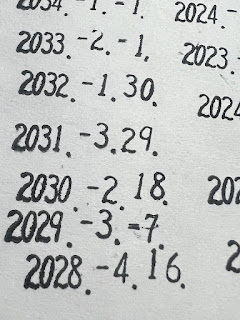 2034. -1. -1.
2033. -2. -1.
2032. -1. 30.
2031. -3. 29.
2030. -2. 18.
2029. -3. -7.
2028. -4. 16.
2024. -
2023.
2024